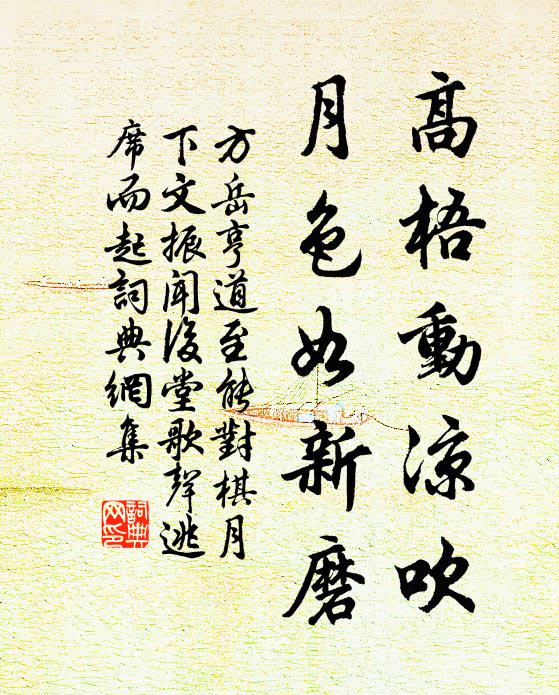 高梧動涼吹
月色如新磨
方岳亨道至能對棋月
下文振聞後堂歌聲逃
席而起詞典網集
詞典
网印